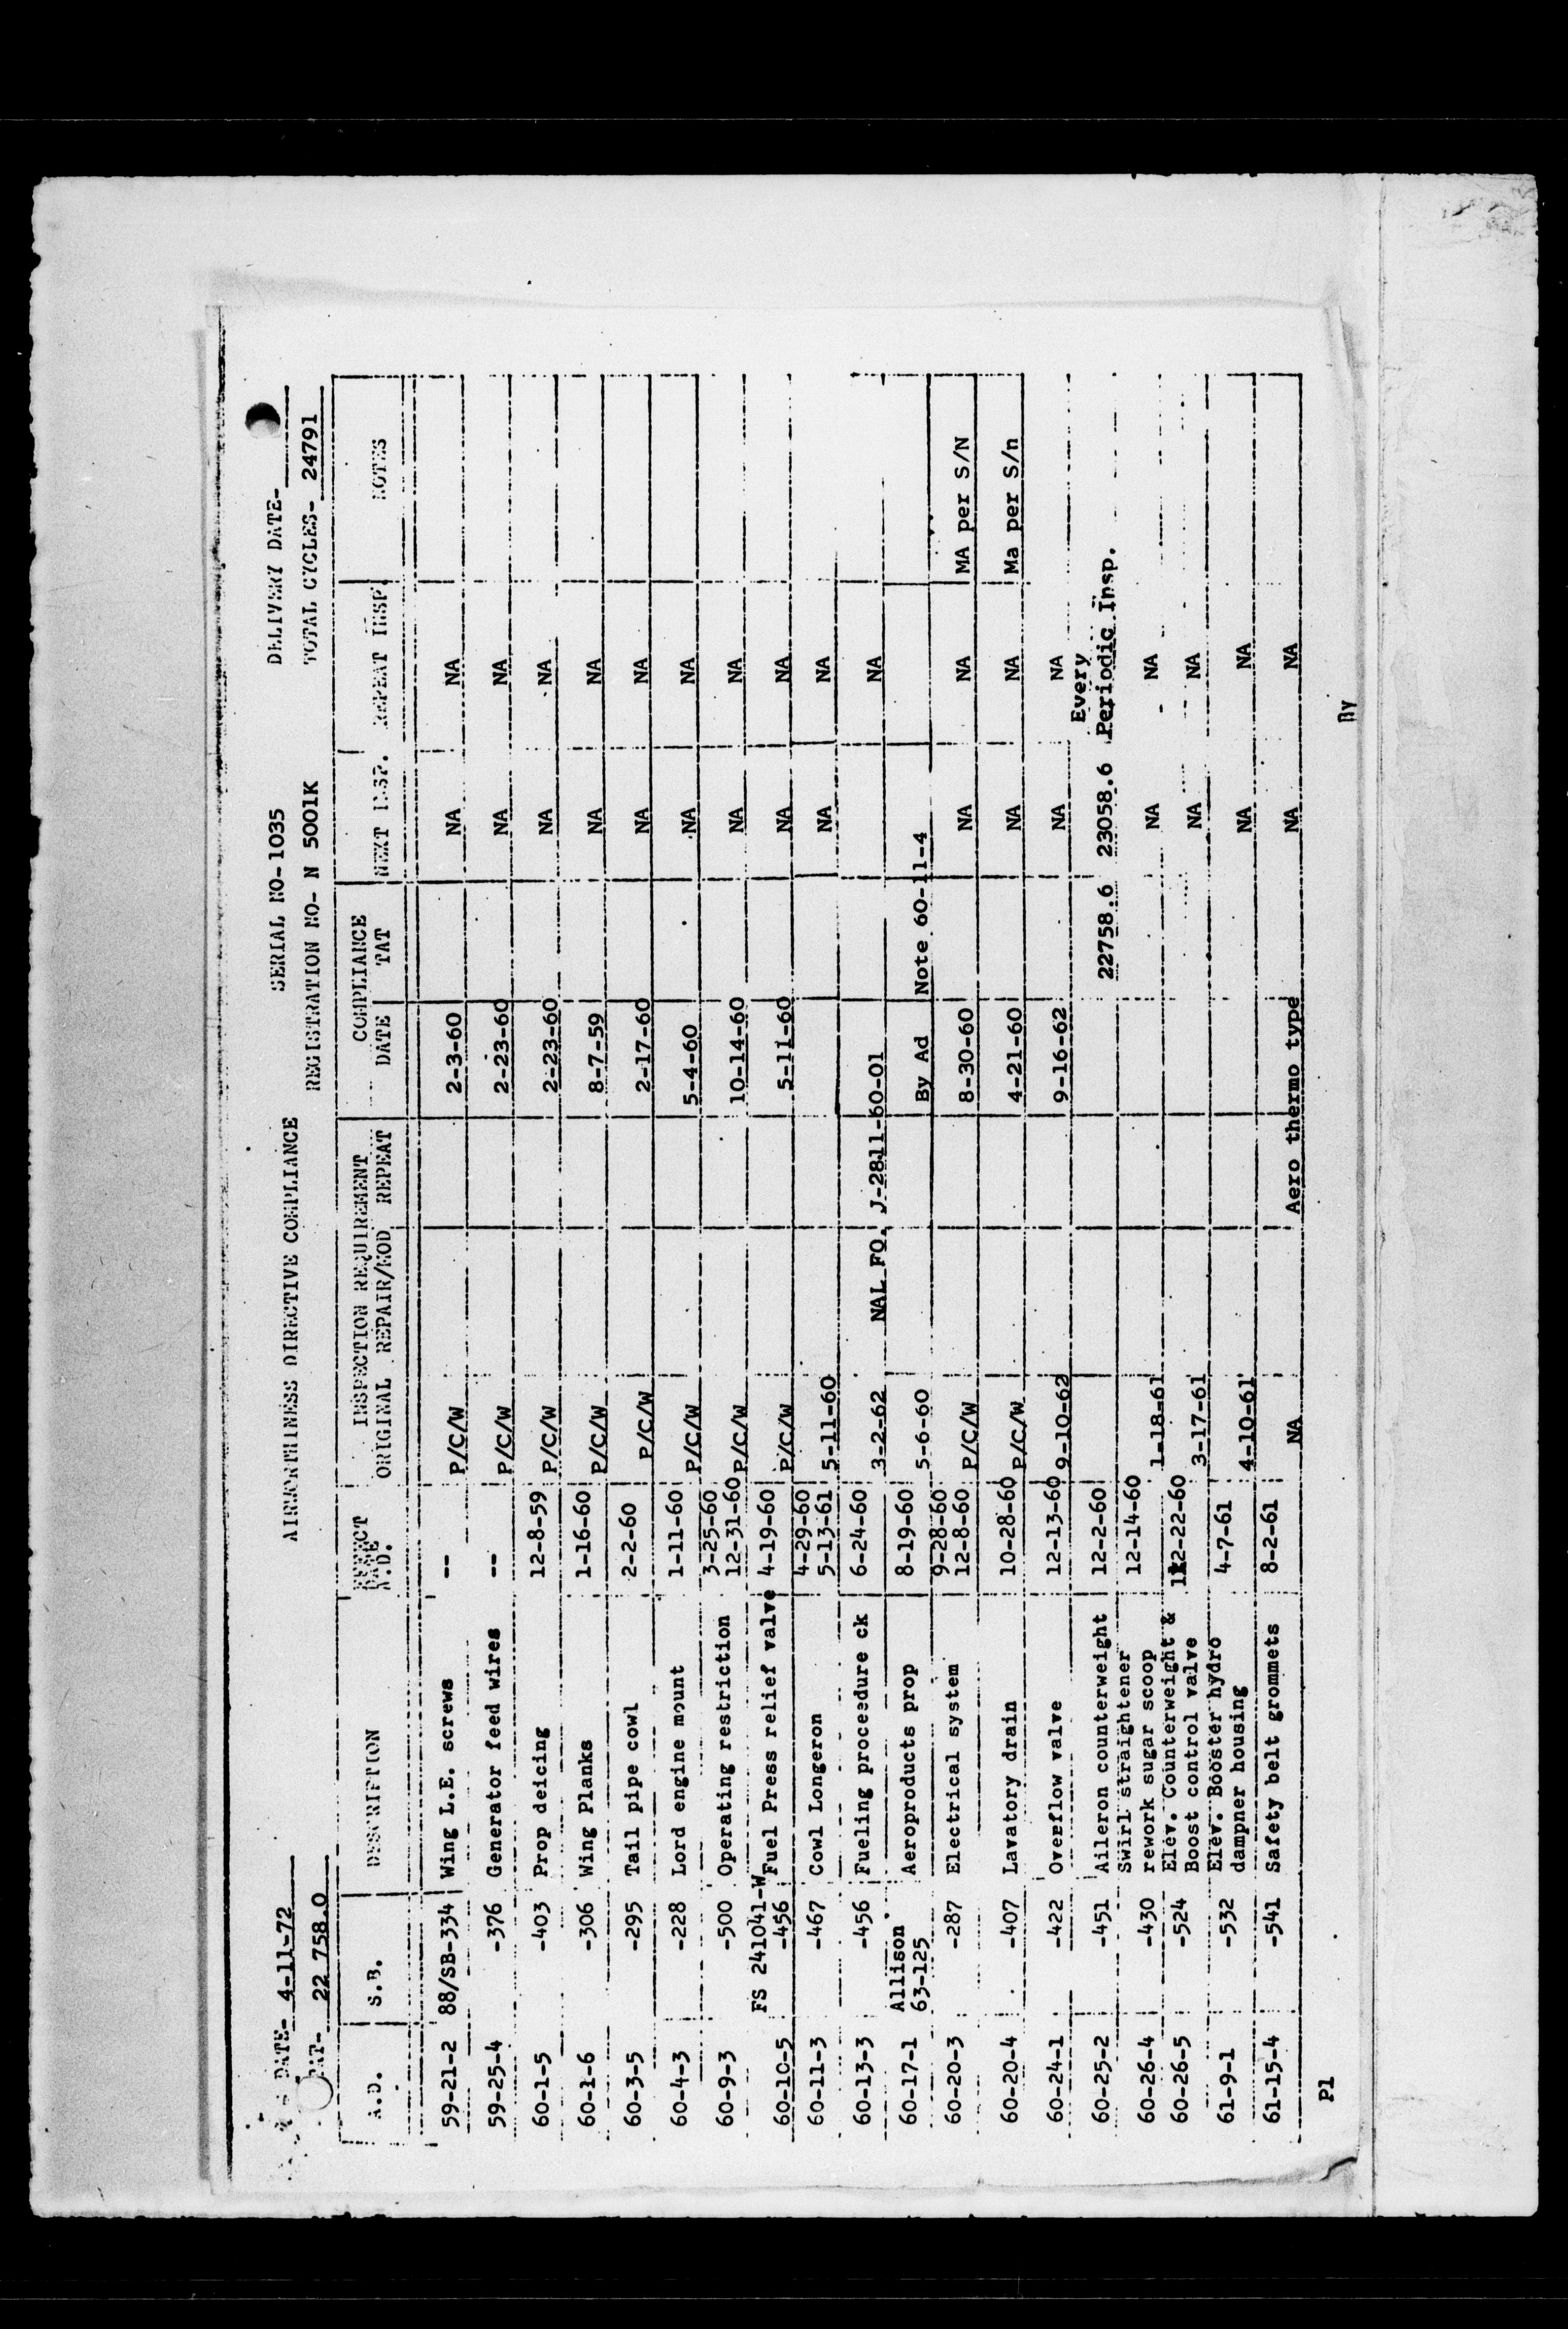 DATE- 4-11-72 AIRWORTHINESS DIRECTIVE COMPLIANCE SERIAL NO-1035 DELIVERY DATE-
TAT- 22 758.0 REGISTRATION NO- N 5001K TOTAL CYCLES- 24791
A.D. S.B. DESCRIPTION EFFECT DATE A.D. INSPECTION REQUIREMENT COMPLIANCE NEXT INSP. REPEAT INSP. NOTES
ORIGINAL REPAIR/MOD REPEAT DATE TAT
59-21-2 88/SB-334 Wing L.E. screws -- P/C/W 2-3-60 NA NA
59-25-4 -376 Generator feed wires -- P/C/W 2-23-60 NA NA
60-1-5 -403 Prop deicing 12-8-59 P/C/W 2-23-60 NA NA
60-1-6 -306 Wing Planks 1-16-60 P/C/W 8-7-59 NA NA
60-3-5 -295 Tail pipe cowl 2-2-60 P/C/W 2-17-60 NA NA
60-4-3 -228 Lord engine mount 1-11-60 P/C/W 5-4-60 NA NA
3-25-60
60-9-3 -500 Operating restriction 12-31-60 P/C/W 10-14-60 NA NA
FS 241041-W
60-10-5 -456 Fuel Press relief valve 4-19-60 P/C/W 5-11-60 NA NA
4-29-60
60-11-3 -467 Cowl Longeron 5-13-61 5-11-60 NA NA
60-13-3 -456 Fueling proceedure ck 6-24-60 3-2-62 NAL FO. J-2811-60-01 NA
Allison
60-17-1 63-125 Aeroproducts prop 8-19-60 5-6-60 By Ad Note 60-11-4
9-28-60
60-20-3 -287 Electrical system 12-8-60 P/C/W 8-30-60 NA NA MA per S/N
60-20-4 -407 Lavatory drain 10-28-60 P/C/W 4-21-60 NA NA Ma per S/n
60-24-1 -422 Overflow valve 12-13-60 9-10-62 9-16-62 NA NA
Every
60-25-2 -451 Aileron counterweight 12-2-60 22758.6 23058.6 Periodic Insp.
Swirl straightener 12-14-60
60-26-4 -430 rework sugar scoop 1-18-61 NA NA
60-26-5 -524 Elev. Counterweight & 12-22-60
Boost control valve 3-17-61 NA NA
61-9-1 -532 Elev. Booster hydro 4-7-61
dampner housing 4-10-61 NA NA
61-15-4 -541 Safety belt grommets 8-2-61 NA Aero thermo type NA NA
P1 By